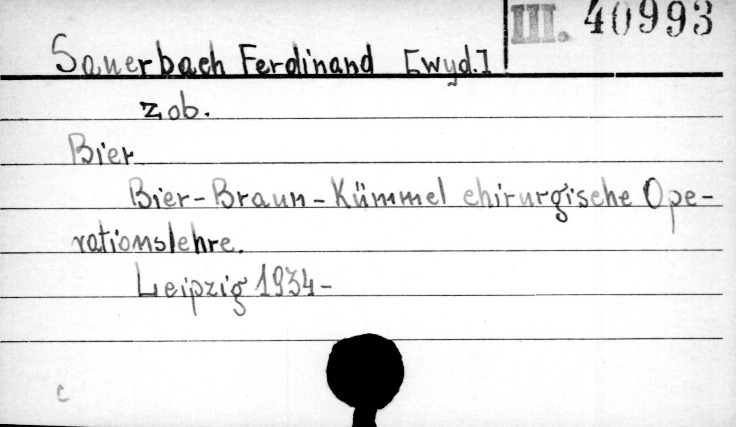 III. 40993
Sauerbach Ferdinand [wyd.]
zob.
Bier
Bier-Braun-Kümmel chirurgische Ope-
rationslehre.
Leipzig 1934-
c